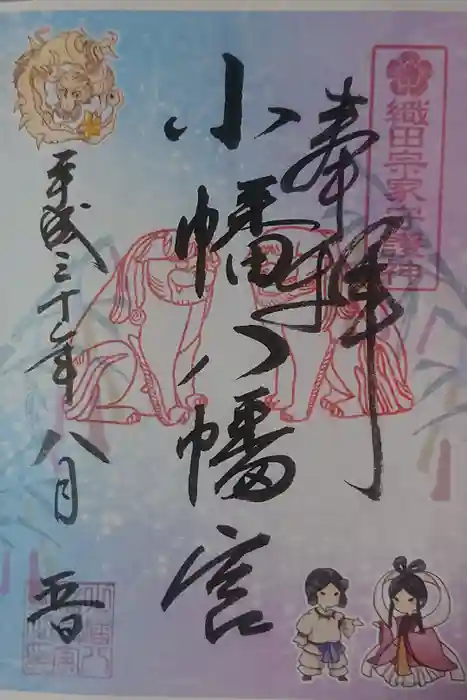 織田宗家守護神
奉拝
小幡八幡宮
平成三十年 八月